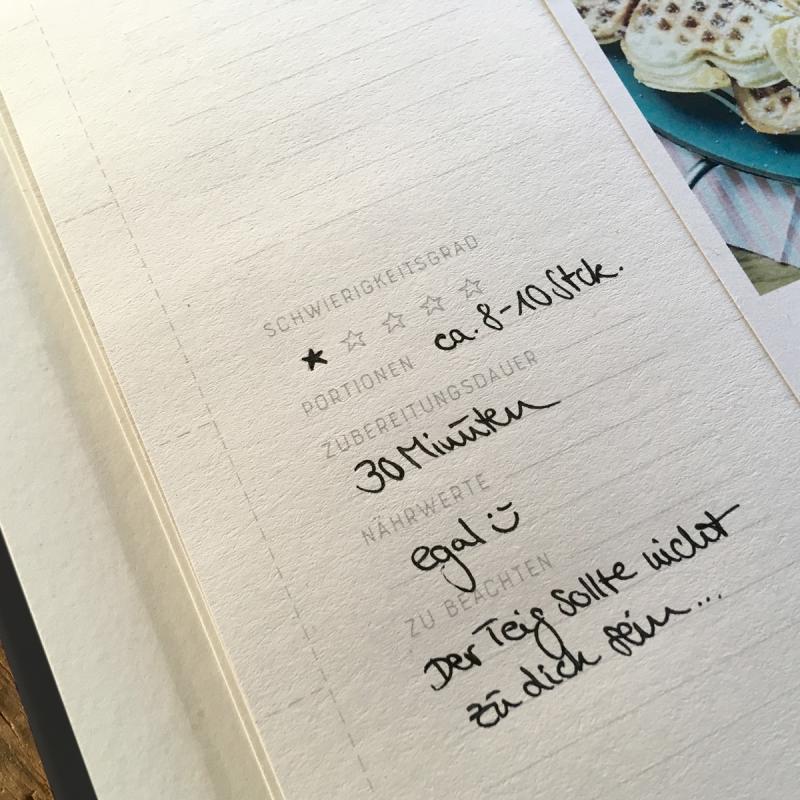 SCHWIERIGKEITSGRAD
★ ☆ ☆ ☆ ☆
PORTIONEN ca. 8-10 Stck.
ZUBEREITUNGSDAUER
30 Minuten
NÄHRWERTE
egal :)
ZU BEACHTEN
Der Teig sollte nicht
zu dick sein...